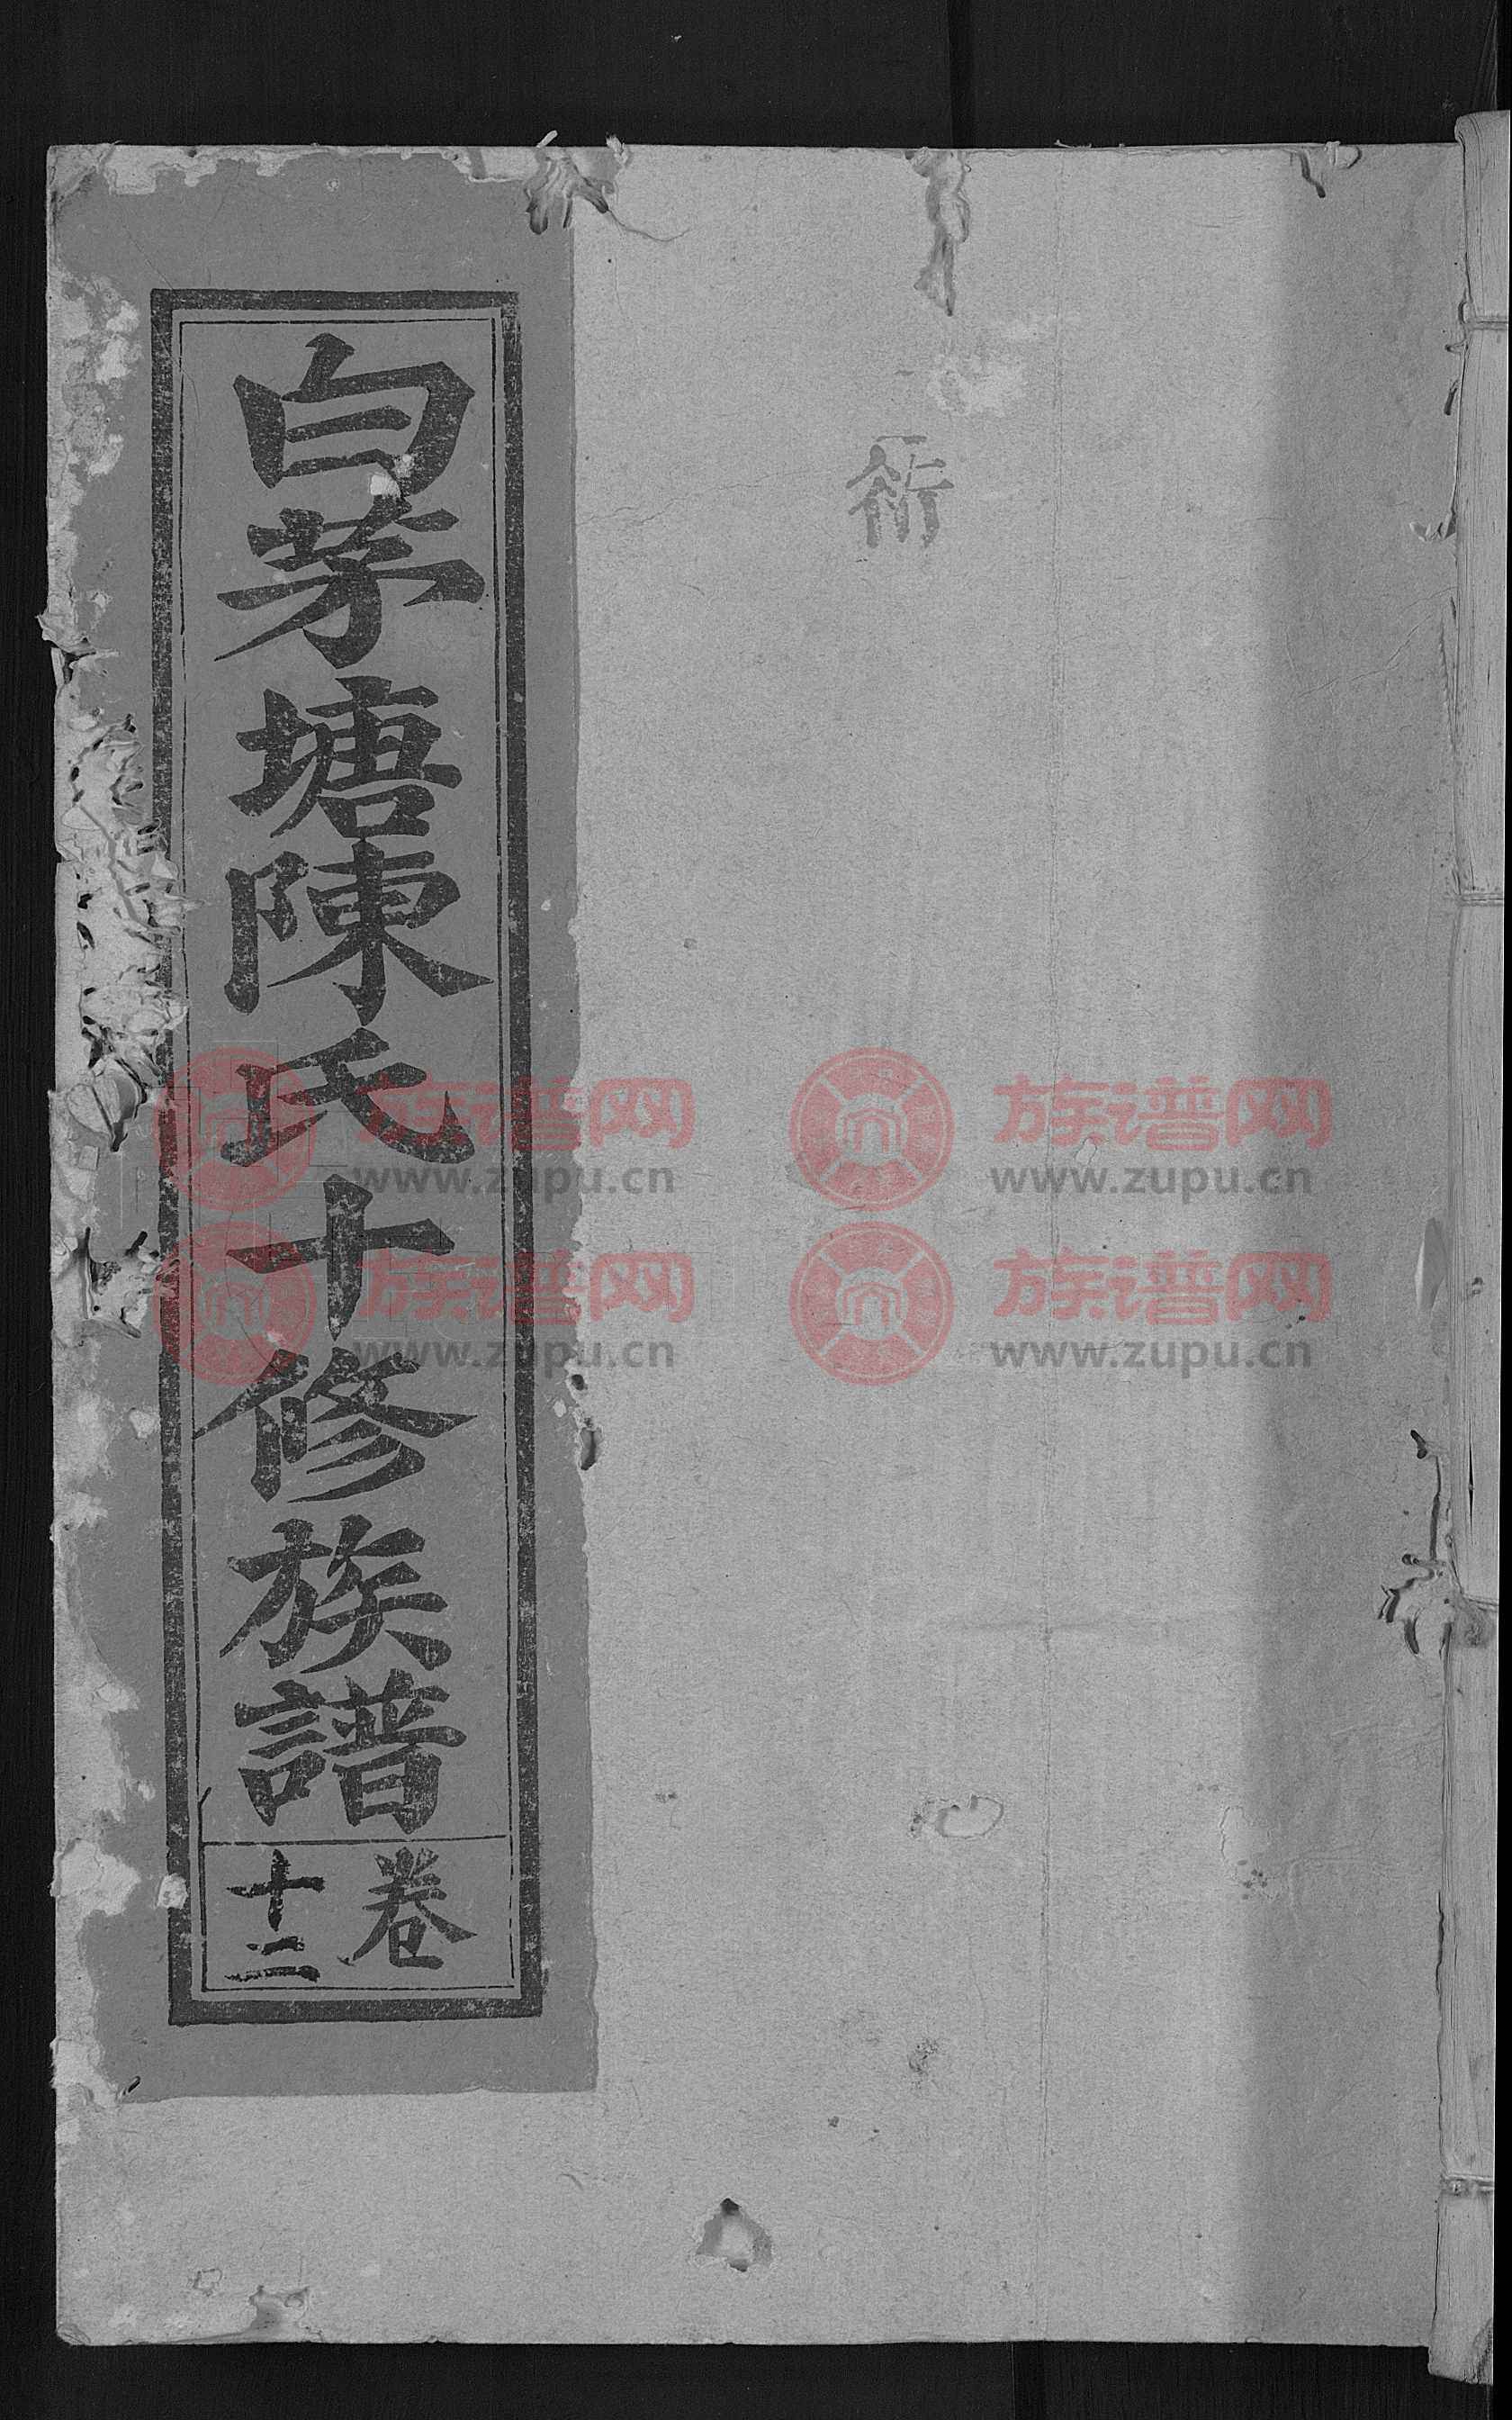 白茅塘陳氏十修族譜
卷
十二
族谱网 族谱网
www.zupu.cn www.zupu.cn
族谱网 族谱网
www.zupu.cn www.zupu.cn